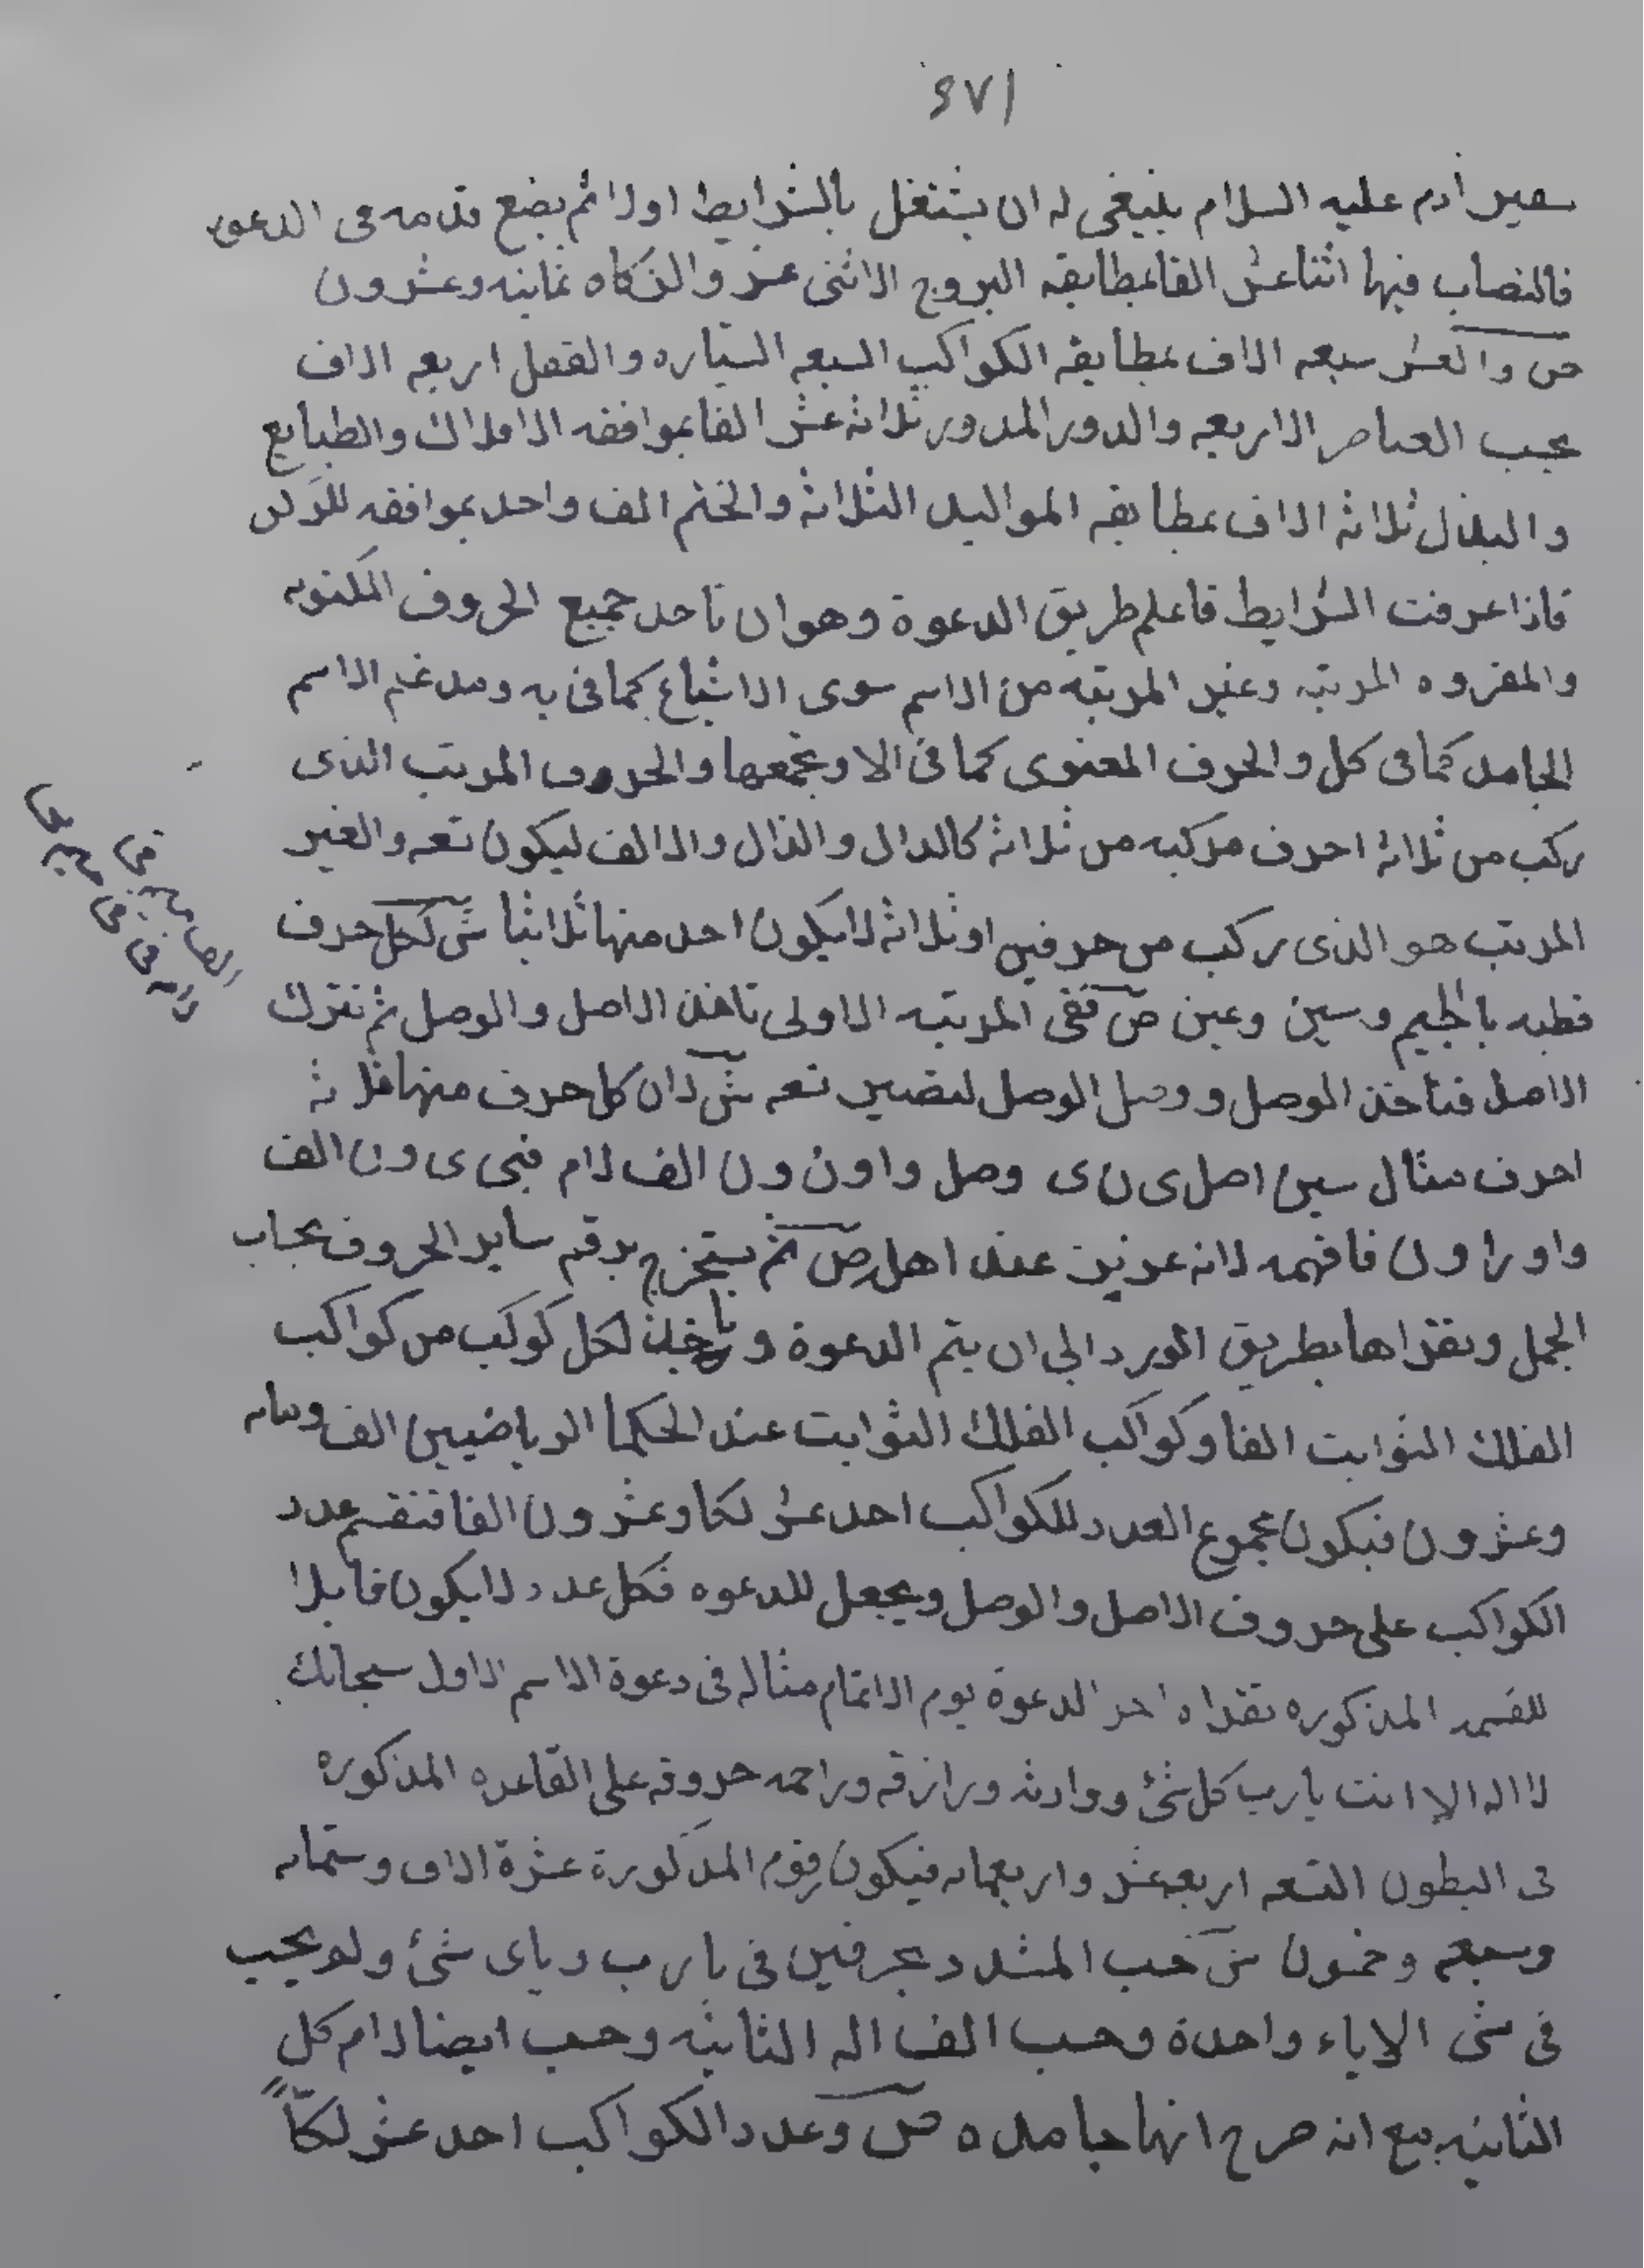 ٤٧١
سفير ادم عليه السلام ينبغى له ان يشتغل بالشرايط اولا ثم يضع قدمه فى الدعوه
فالنصاب فيها اثنا عشر الفا بمطابقه البروج الاثنى عشر والزكاه ثمانيه وعشرون
ص والعشر سبعه الاف بمطابقه الكواكب السبعه السياره والقفل اربعه الاف
بحسب العناصر الاربعه والدور المدور ثلاثه عشر الفا بموافقه الافلاك والطبايع
والبذل ثلاثه الاف بمطابقه المواليد الثلاثه والختم الف واحد بموافقه
فاذا عرفت الشرايط فاعلم طريق الدعوة وهو ان تاخذ جميع الحروف المكتوبه
والمقروه المرتبه وغير المرتبه من الاسم سوى الاشباع كما فى به ومدغم الاسم
الجامد كما فى كل والحرف المعنوى كما فى الا وتجمعها والحروف المرتب الذى
يركب من ثلاثة احرف مركبه من ثلاثه كالدال والذال والالف ليكون تسعه والغير
المرتب هو الذى يركب من حرفين او ثلاثه لا يكون احد منها ثلاثيا ش لكل حرف
قطبه بالجيم وسين وعين ص ففى المرتبه الاولى تاخذ الاصل والوصل ثم تترك
الاصل فتاخذ الوصل ووصل الوصل لتصير تسعه ش لان كل حرف منها ثلاثه
احرف مثال سين اصل ى ن ى وصل واو ن ون الف لام فبقى ى ون الف
واو را ون فافهمه لانه عزيز عند اهله ص ثم يستخرج برقم ساير الحروف بحساب
الجمل ويقراها بطريق الورد الى ان يتم الدعوة وياخذ لكل كوكب من كواكب
الفلك الثوابت الفا وكواكب الفلك الثوابت عند الحكما الرياضيين الف ومايه
وعشرون فيكون مجموع العدد للكواكب احد عشر لكا وعشرون الفا فتقسم عدد
الكواكب على حروف الاصل والوصل ويجعل للدعوه فكل عدد لا يكون قابلا
للقسمه المذكوره تقراه اخر الدعوة يوم الاتمام مثاله فى دعوة الاسم الاول سبحانك
لا اله الا انت يا رب كل شئ ووارثه ورازقه وراحمه حروفه على القاعده المذكوره
فى البطون التسعه اربعه عشر واربعمايه فيكون رقوم المذكورة عشرة الاف وستمايه
وسبعه وخمسون ش حسب المشدد بحرفين فى يا رب وياى شئ ولم يحسب
فى شى الا ياء واحدة وحسب الف اله الثانيه وحسب ايضا لام كل
الثانيه مع انه صرح انها جامده ص وعدد الكواكب احد عشر لكا